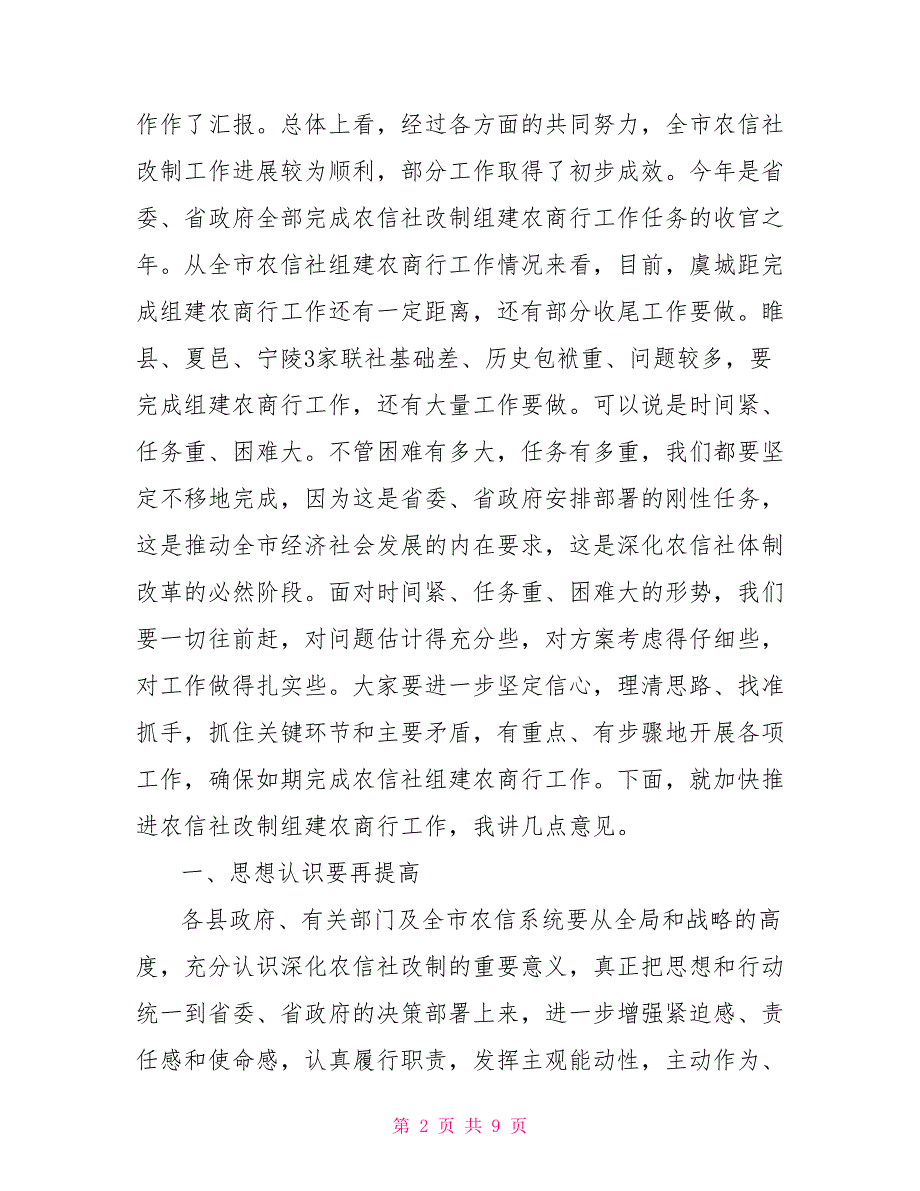 作作了汇报。总体上看，经过各方面的共同努力，全市农信社
改制工作进展较为顺利，部分工作取得了初步成效。今年是省
委、省政府全部完成农信社改制组建农商行工作任务的收官之
年。从全市农信社组建农商行工作情况来看，目前，虞城距完
成组建农商行工作还有一定距离，还有部分收尾工作要做。睢
县、夏邑、宁陵3家联社基础差、历史包袱重、问题较多，要
完成组建农商行工作，还有大量工作要做。可以说是时间紧、
任务重、困难大。不管困难有多大，任务有多重，我们都要坚
定不移地完成，因为这是省委、省政府安排部署的刚性任务，
这是推动全市经济社会发展的内在要求，这是深化农信社体制
改革的必然阶段。面对时间紧、任务重、困难大的形势，我们
要一切往前赶，对问题估计得充分些，对方案考虑得仔细些，
对工作做得扎实些。大家要进一步坚定信心，理清思路、找准
抓手，抓住关键环节和主要矛盾，有重点、有步骤地开展各项
工作，确保如期完成农信社组建农商行工作。下面，就加快推
进农信社改制组建农商行工作，我讲几点意见。
一、思想认识要再提高
各县政府、有关部门及全市农信系统要从全局和战略的高
度，充分认识深化农信社改制的重要意义，真正把思想和行动
统一到省委、省政府的决策部署上来，进一步增强紧迫感、责
任感和使命感，认真履行职责，发挥主观能动性，主动作为、
第 2 页 共 9 页